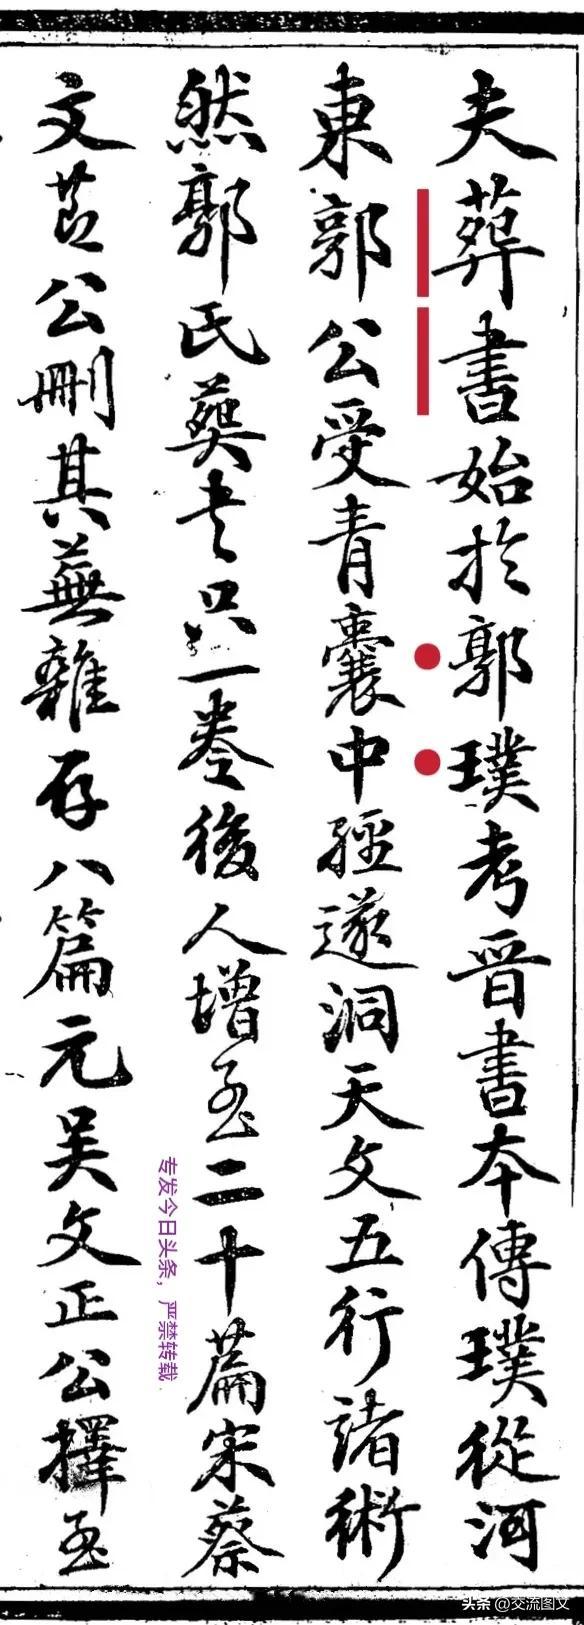 夫葬書始於郭璞考晋書本傳璞從河
東郭公受青囊中經遂洞天文五行諸術
然郭氏葬书只一卷後人增至二十篇宋蔡
文莭公刪其蕪雜存八篇元吴文正公擇至
专发今日头条，严禁转载
头条 @交流图文